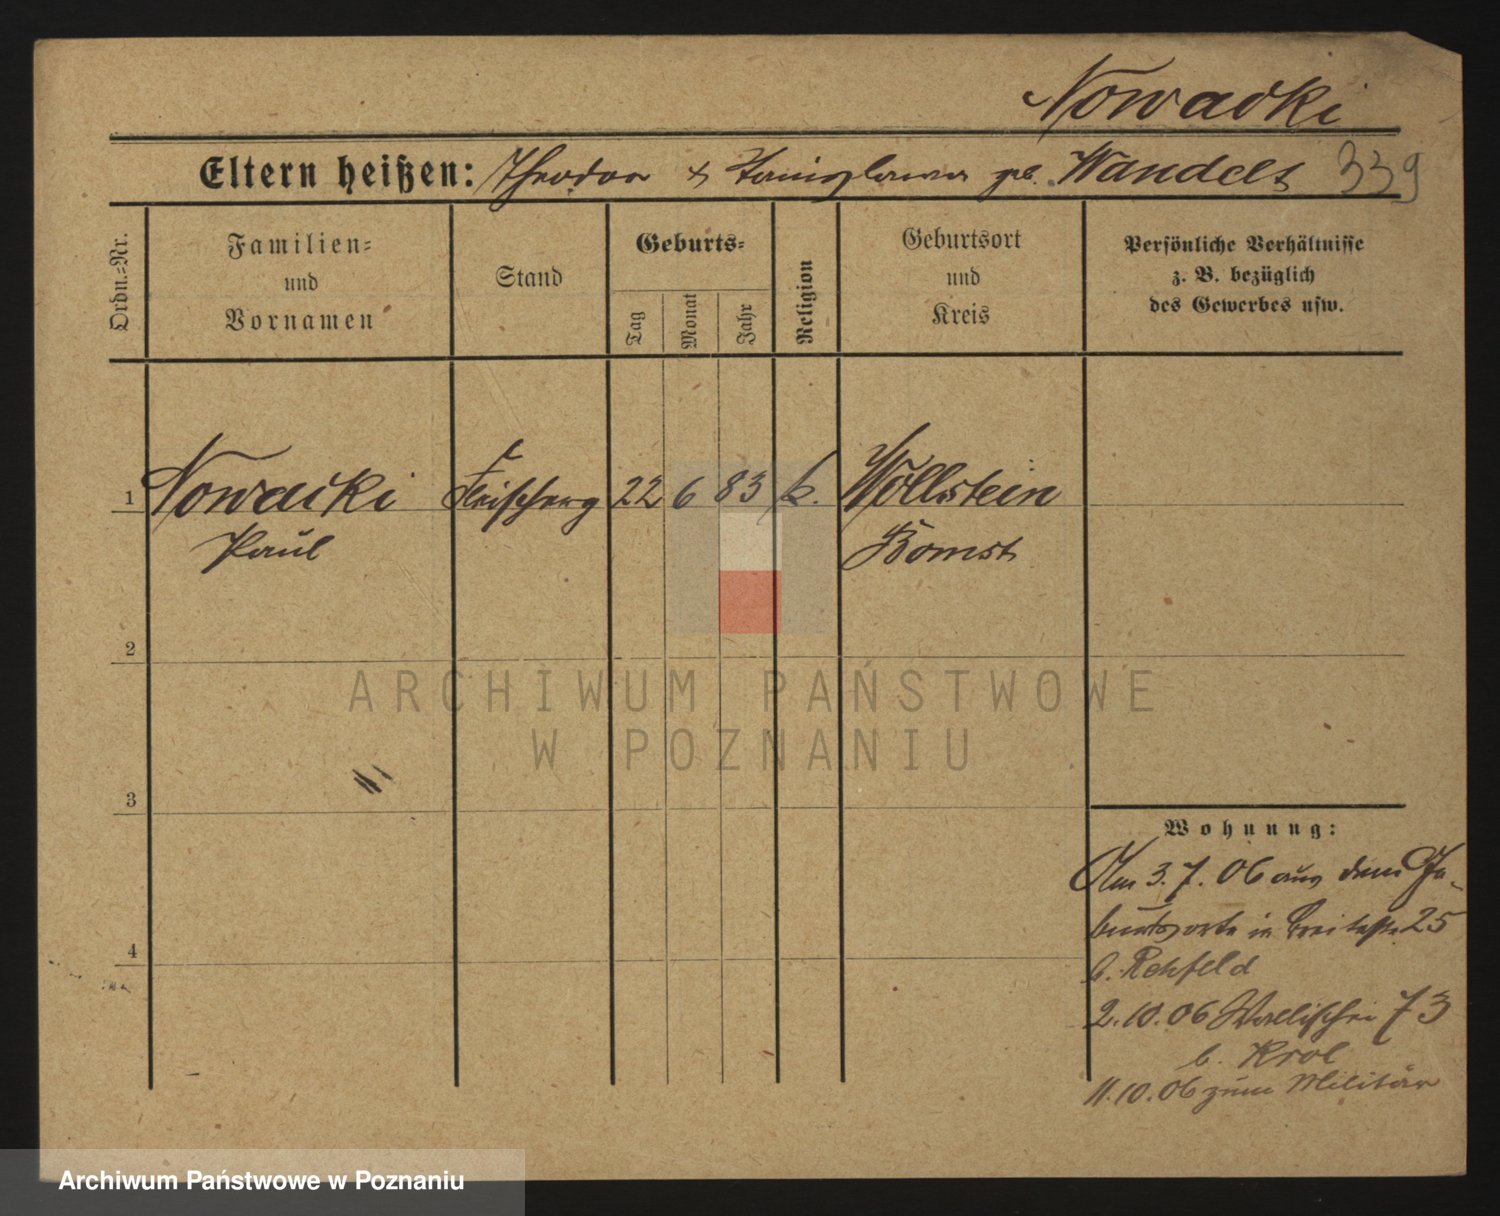 Nowacki
Eltern heißen: Theodor & Stanislawa geb. Wandelt 339
Ordn.-Nr.
Familien-
und
Vornamen
Stand
Geburts-
Tag
Monat
Jahr
Religion
Geburtsort
und
Kreis
Persönliche Verhältnisse
z. B. bezüglich
des Gewerbes usw.
1 Nowacki Fleischerg 22 6 83 k. Wollstein
Paul Bomst
2
3
4
Wohnung:
Am 3. 7. 06 aus dem Ge-
burtsorte in Breitestr 25
b. Rehfeld
2.10.06 Wallischei 73
b. Krol
11.10.06 zum Militär
ARCHIWUM PAŃSTWOWE
W POZNANIU
Archiwum Państwowe w Poznaniu